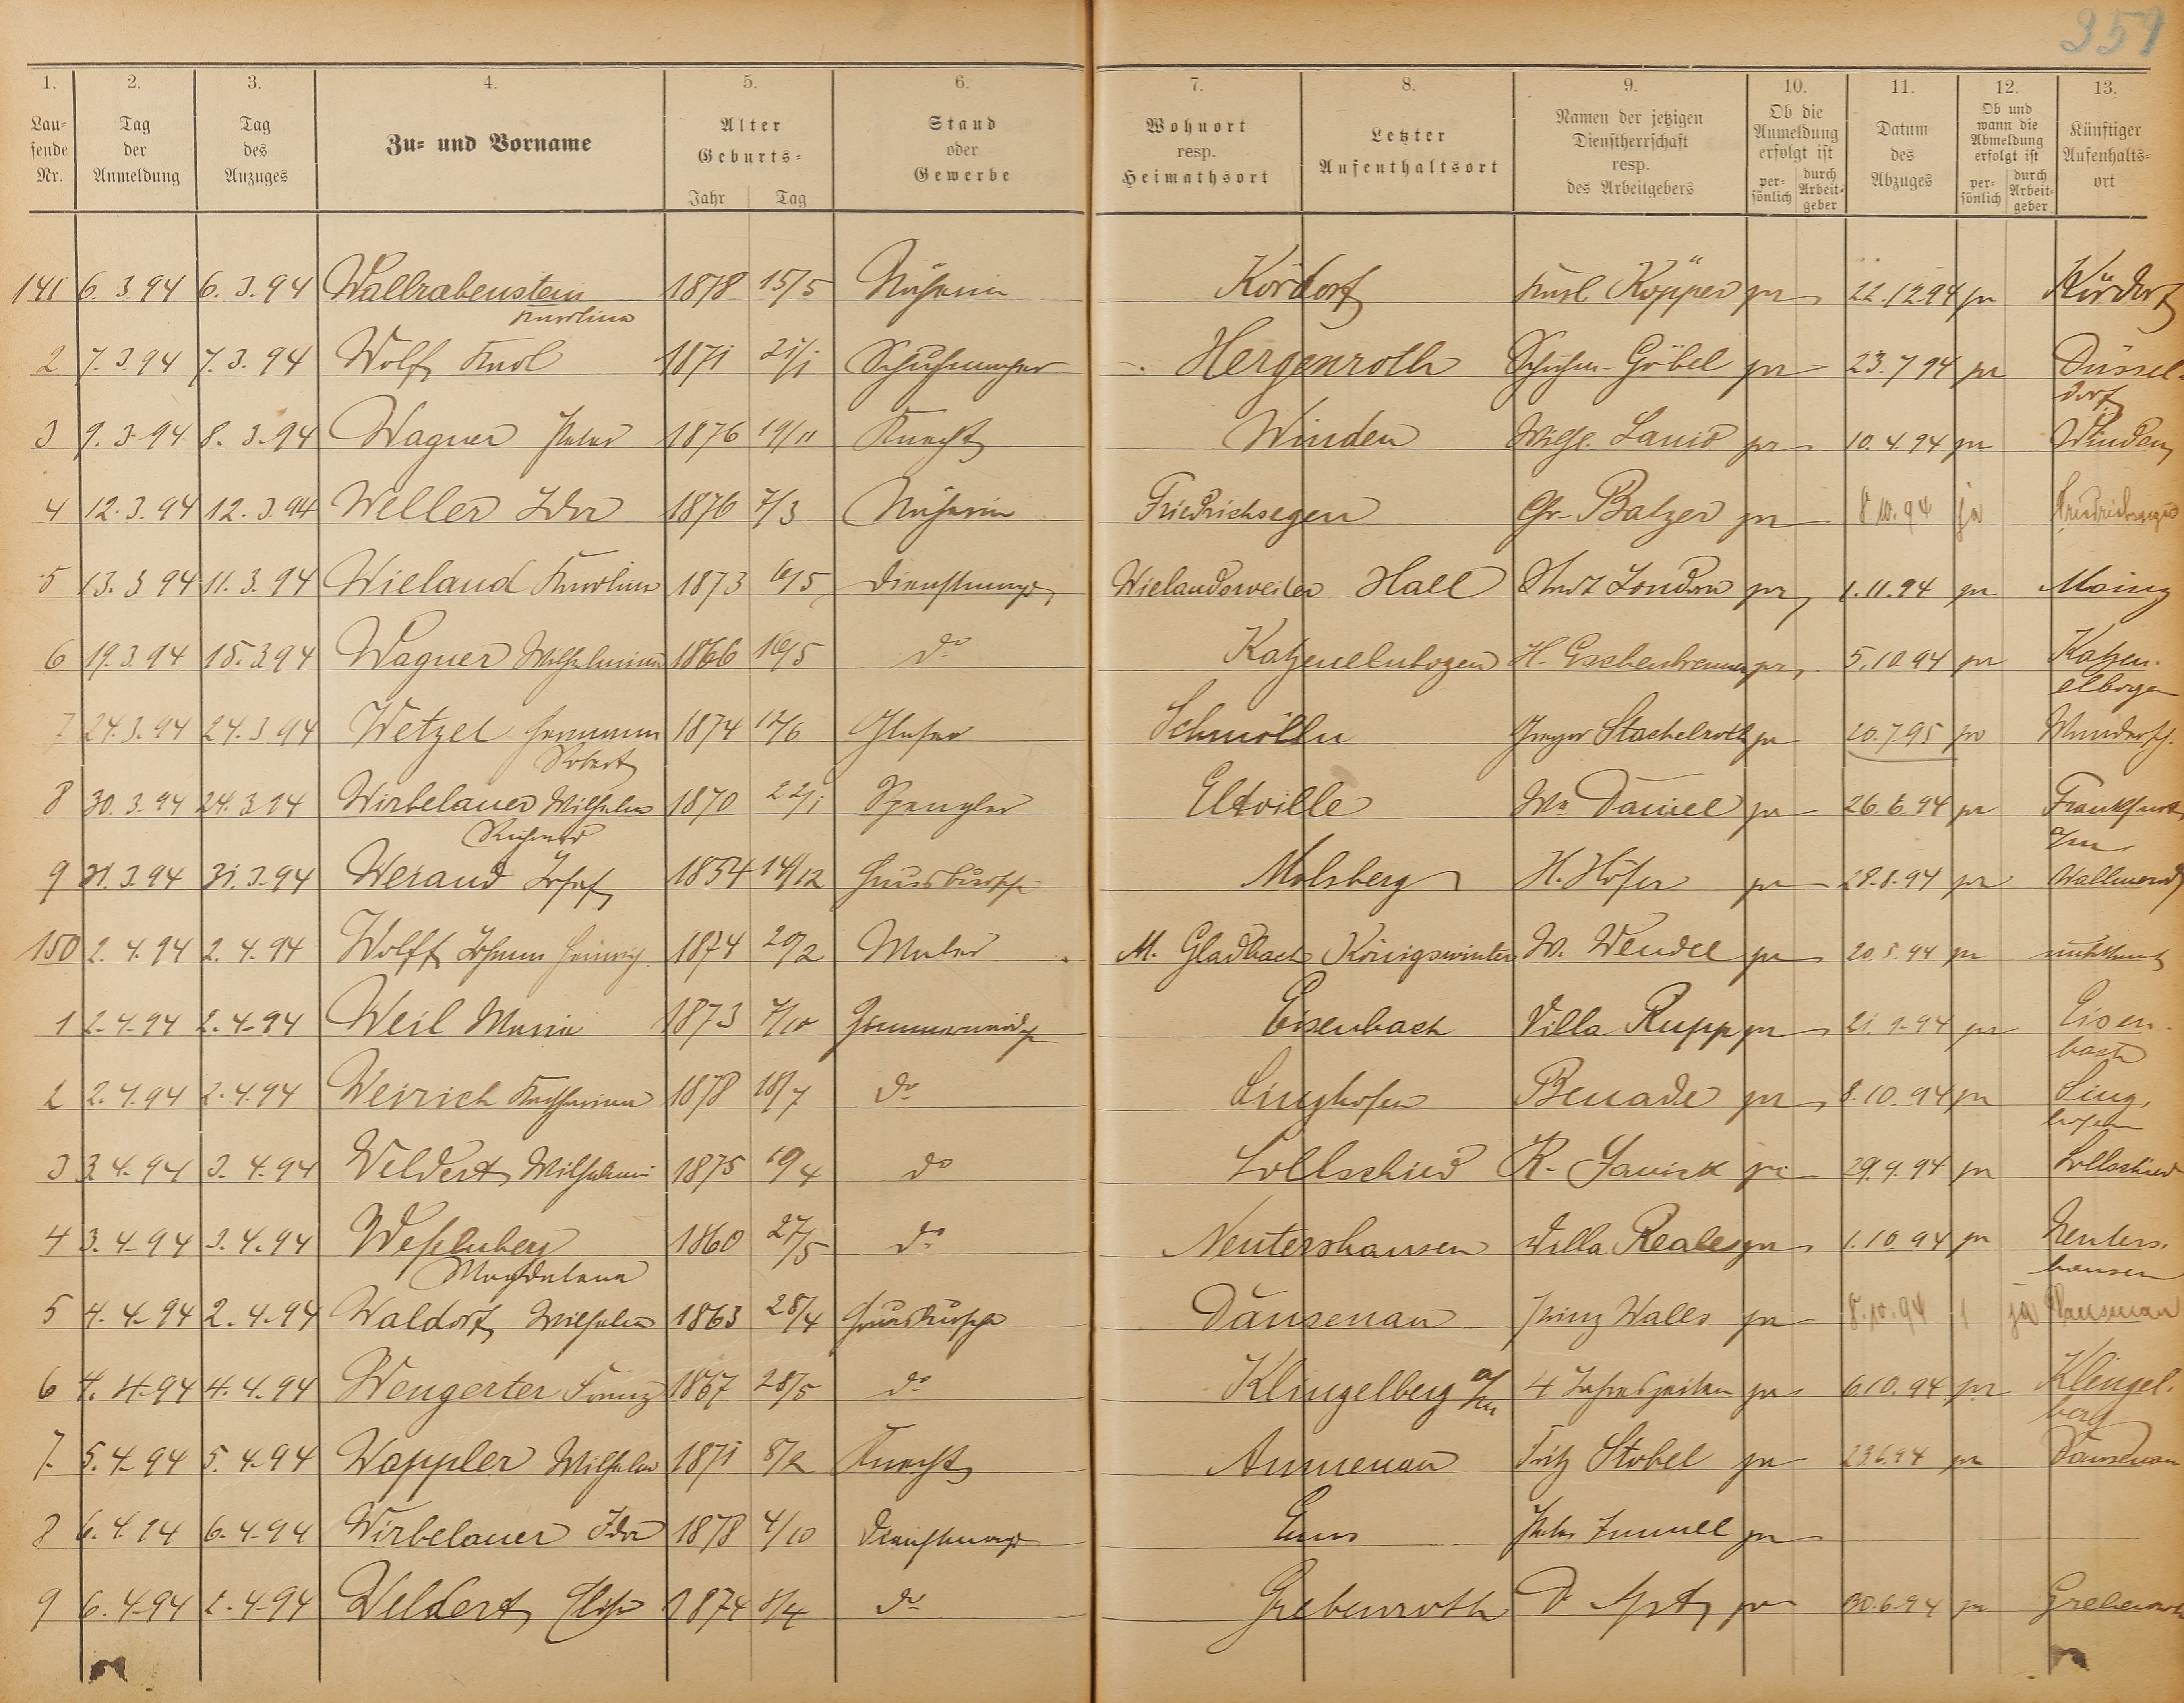 351
1. 2. 3. 4. 5. 6. 7. 8. 9. 10. 11. 12. 13.
Lau-
fende
Nr.
Tag
der
Anmeldung
Tag
des
Anzuges
Zu- und Vorname
Alter
Geburts-
Jahr Tag
Stand
oder
Gewerbe
Wohnort
resp.
Heimathsort
Letzter
Aufenthaltsort
Namen der jetzigen
Dienstherrschaft
resp.
des Arbeitgebers
Ob die
Anmeldung
erfolgt ist
per-
sönlich
durch
Arbeit-
geber
Datum
des
Abzuges
Ob und
wann die
Abmeldung
erfolgt ist
per-
sönlich
durch
Arbeit-
geber
Künftiger
Aufenhalts-
ort
141 6. 3. 94 6. 3. 94 Wallrabenstein 1878 15/5 Näherin Kördorf Karl Köpper pr 22.12 94 pr Kördorf
Karoline
2 7. 3 94 7. 3. 94 Wolf Karl 1871 21/1 Schuhmacher Hergenroth Schuhm. Göbel pr 23. 7 94 pr Düssel-
dorf
3 9. 3 94 8. 3. 94 Wagner Peter 1876 19/11 Knecht Winden Wilh. Lanio pr 10. 4. 94 pr Winden
4 12. 3. 94 12. 3. 94 Weller Ida 1876 7/3 Näherin Friedrichsegen Gr. Balzer pr 8. 10. 94 ja Friedrichsegen
5 13. 3 94 11. 3. 94 Wieland Karoline 1873 6/5 Dienstmagd Wielandsweiler Hall Stadt London pr 1. 11. 94 pr Mainz
6 19. 3. 94 15. 3 94 Wagner Wilhelmine 1866 16/5 do Katzenelnbogen H. Eschenbrenner pr 5. 10 94 pr Katzen-
elbogen
7 24. 3. 94 24. 3 94 Wetzel Hermann 1874 12/6 Glaser Schmölln Stachelroth pr 20. 7 95 pr
Robert
8 30. 3. 94 24. 3 94 Wirbelauer Wilhelm 1870 22/1 Spengler Eltville Wn Daniel pr 26. 6. 94 pr Frankfurt
Richard a/m
9 31. 3. 94 31. 3. 94 Werand Josef 1854 14/12 Hausbursche Molsberg H. Höfer pr 28. 8. 94 pr Wallmerod
150 2. 4. 94 2. 4. 94 Wolff Johann Heinrich 1874 20/2 Maler M. Gladbach Königswinter W. Wendel pr 20 5. 94 pr unbekannt
1 2. 4. 94 2. 4. 94 Weil Maria 1873 7/10 Zimmermädch Eisenbach Villa Rupp pr 21. 9. 94 pr Eisen-
bach
2 2. 4. 94 2. 4. 94 Weirich Katharina 1878 18/7 do Singhofen Benade pr 8. 10. 94 pr Sing-
hofen
3 3 4. 94 3. 4. 94 Weldert Wilhelmine 1875 19/4 do Lollschied pr 29. 9. 94 pr Lollschied
4 3. 4. 94 3. 4. 94 Weßelnberg 1860 27/5 do Nentershausen Villa Reales pr 1. 10. 94 pr Nenters-
Magdalena hausen
5 4. 4. 94 2. 4. 94 Waldorf Wilhelm 1863 28/4 Hausbursche Dausenau Prinz Wales pr 8. 10. 94 1 ja Dausenau
6 4. 4. 94 4. 4. 94 Wengerter Franz 1867 28/5 do Klingelberg a/m 4 Jahreszeiten pr 6 10. 94 pr Klingel-
berg
7. 5. 4. 94 5. 4. 94 Wappler Wilhelm 1871 8/2 Knecht Aumenau Fritz Strobel pr 23 6. 94 pr Dausenau
8 6. 4. 94 6. 4. 94 Wirbelauer Ida 1878 4/10 Dienstmagd Ems Peter Immel pr
9 6. 4. 94 2. 4. 94 Weldert Elise 1874 8/4 do Grebenroth D pr 30. 6. 94 pr Grebenroth